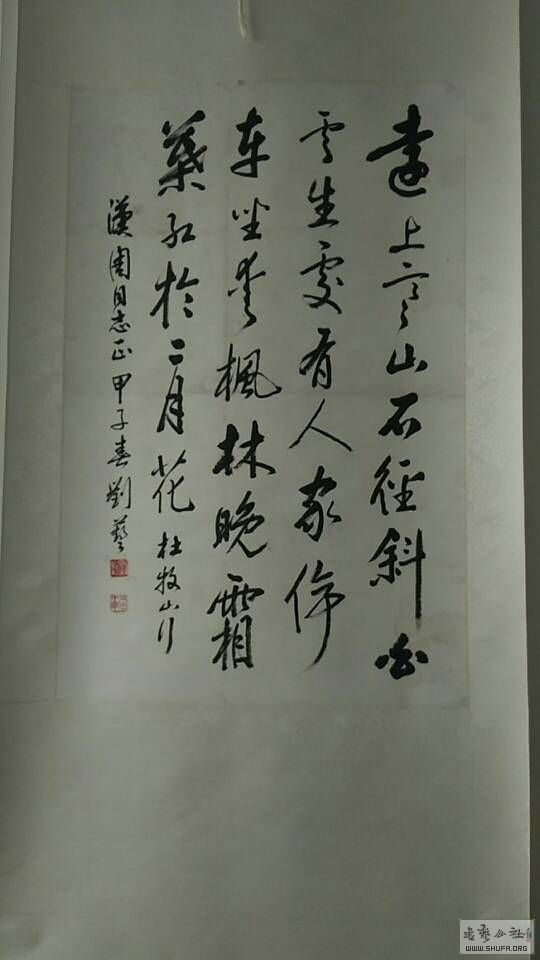 遠上寒山石徑斜白
雲生處有人家停
車坐愛楓林晚霜
葉紅於二月花 杜牧山行
漢閣同志正 甲子春 劉藝
書艺公社
WWW.SHUFA.ORG